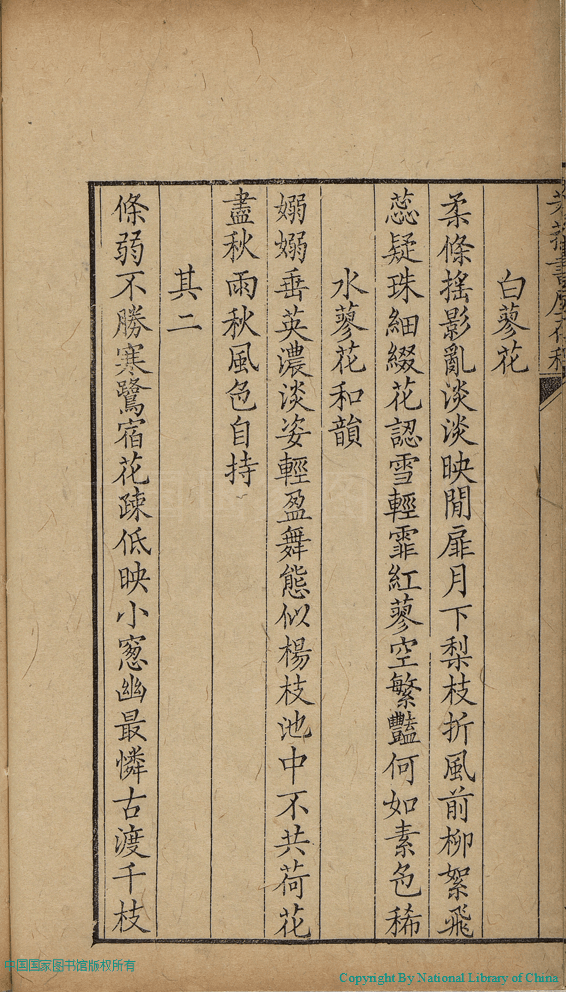 白蓼花
柔條搖影亂淡淡映閒扉月下梨枝折風前柳絮飛
蕊疑珠細綴花認雪輕霏紅蓼空繁豔何如素色稀
水蓼花和韻
嫋嫋垂英濃淡姿輕盈舞態似楊枝池中不共荷花
盡秋雨秋風色自持
其二
條弱不勝寒鷺宿花疎低映小窻幽最憐古渡千枝
中国国家图书馆版权所有
Copyright By National Library of China